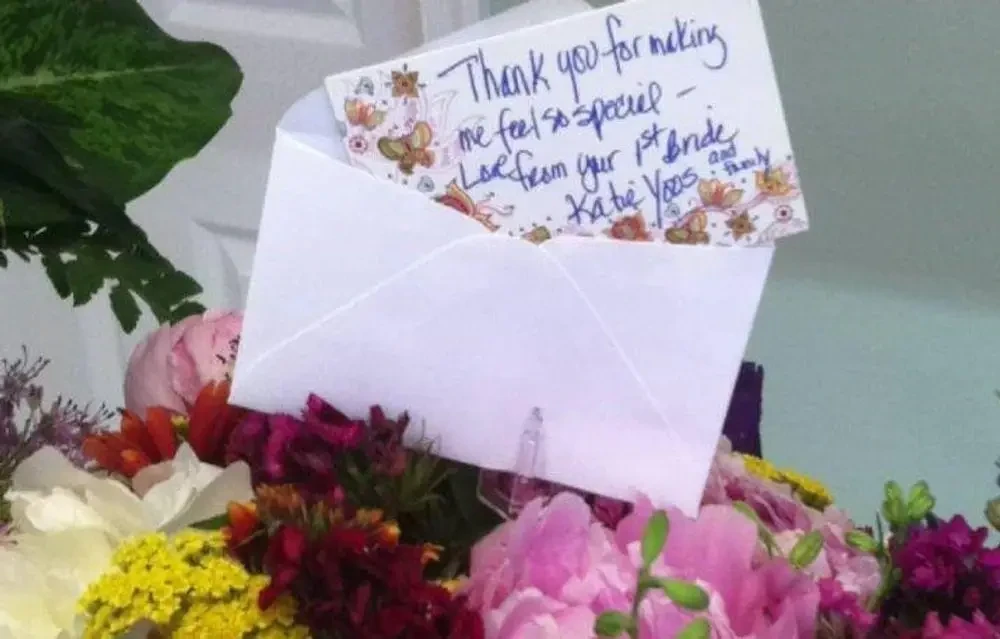 Thank you for making
me feel so special -
Love from your 1st Bride
Katie Yoos and family